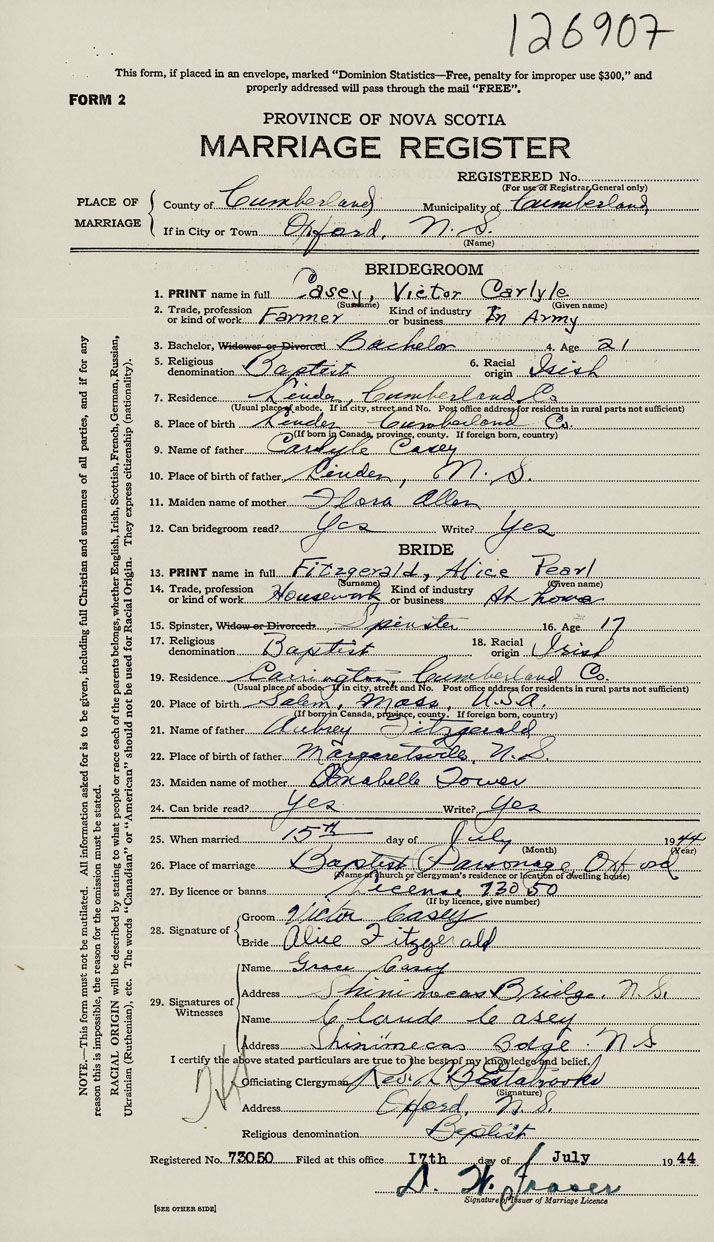 126907
This form, if placed in an envelope, marked "Dominion Statistics—Free, penalty for improper use $300," and
properly addressed will pass through the mail "FREE".
FORM 2
PROVINCE OF NOVA SCOTIA
MARRIAGE REGISTER
REGISTERED No.
(For use of Registrar General only)
PLACE OF MARRIAGE
County of Cumberland Municipality of Cumberland
If in City or Town Oxford, N. S.
(Name)
BRIDEGROOM
1. PRINT name in full Casey, Victor Carlyle
(Surname) (Given name)
2. Trade, profession or kind of work Farmer Kind of industry or business In Army
3. Bachelor, Widower or Divorced Bachelor 4. Age 21
5. Religious denomination Baptist 6. Racial origin Irish
7. Residence Linden, Cumberland Co.
(Usual place of abode. If in city, street and No. Post office address for residents in rural parts not sufficient)
8. Place of birth Linden Cumberland Co.
(If born in Canada, province, county. If foreign born, country)
9. Name of father Carlyle Casey
10. Place of birth of father Linden, N. S.
11. Maiden name of mother Flora Allen
12. Can bridegroom read? Yes Write? Yes
BRIDE
13. PRINT name in full Fitzgerald, Alice Pearl
(Surname) (Given name)
14. Trade, profession or kind of work Housework Kind of industry or business At home
15. Spinster, Widow or Divorced Spinster 16. Age 17
17. Religious denomination Baptist 18. Racial origin Irish
19. Residence Carrington, Cumberland Co.
(Usual place of abode. If in city, street and No. Post office address for residents in rural parts not sufficient)
20. Place of birth Salem, Mass, U.S.A.
(If born in Canada, province, county. If foreign born, country)
21. Name of father Aubrey Fitzgerald
22. Place of birth of father Margaretsville, N.S.
23. Maiden name of mother Anabelle Tower
24. Can bride read? Yes Write? Yes
25. When married 15th day of July 1944
(Month) (Year)
26. Place of marriage Baptist Parsonage, Oxford
(Name of church or clergyman's residence or location of dwelling house)
27. By licence or banns License 73050
(If by licence, give number)
28. Signature of
Groom Victor Casey
Bride Alice Fitzgerald
29. Signatures of Witnesses
Name Grace Casey
Address Shinimecas Bridge, N.S.
Name Claude Casey
Address Shinimecas Bdge N S
I certify the above stated particulars are true to the best of my knowledge and belief.
Officiating Clergyman Rev. Estabrooks
(Signature)
Address Oxford, N. S.
Religious denomination Baptist
Registered No. 73050 Filed at this office 17th day of July 1944
D. W. Fraser
Signature of Issuer of Marriage Licence
[SEE OTHER SIDE]
NOTE.—This form must not be mutilated. All information asked for is to be given, including full Christian and surnames of all parties, and if for any
reason this is impossible, the reason for the omission must be stated.
RACIAL ORIGIN will be described by stating to what people or race each of the parents belongs, whether English, Irish, Scottish, French, German, Russian,
Ukrainian (Ruthenian), etc. The words "Canadian" or "American" should not be used for Racial Origin. They express citizenship (nationality).